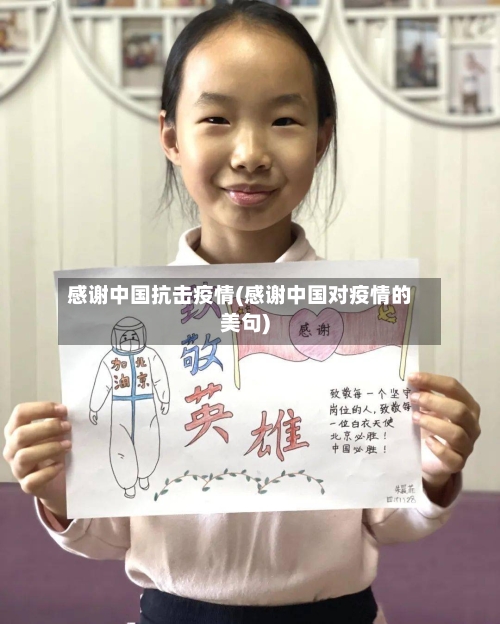 感谢中国抗击疫情(感谢中国对疫情的
美句)
致
敬
英
雄
感谢
加 北
油 京
致敬每一个坚守
岗位的人,致敬每
一位白衣天使
北京必胜!
中国必胜!